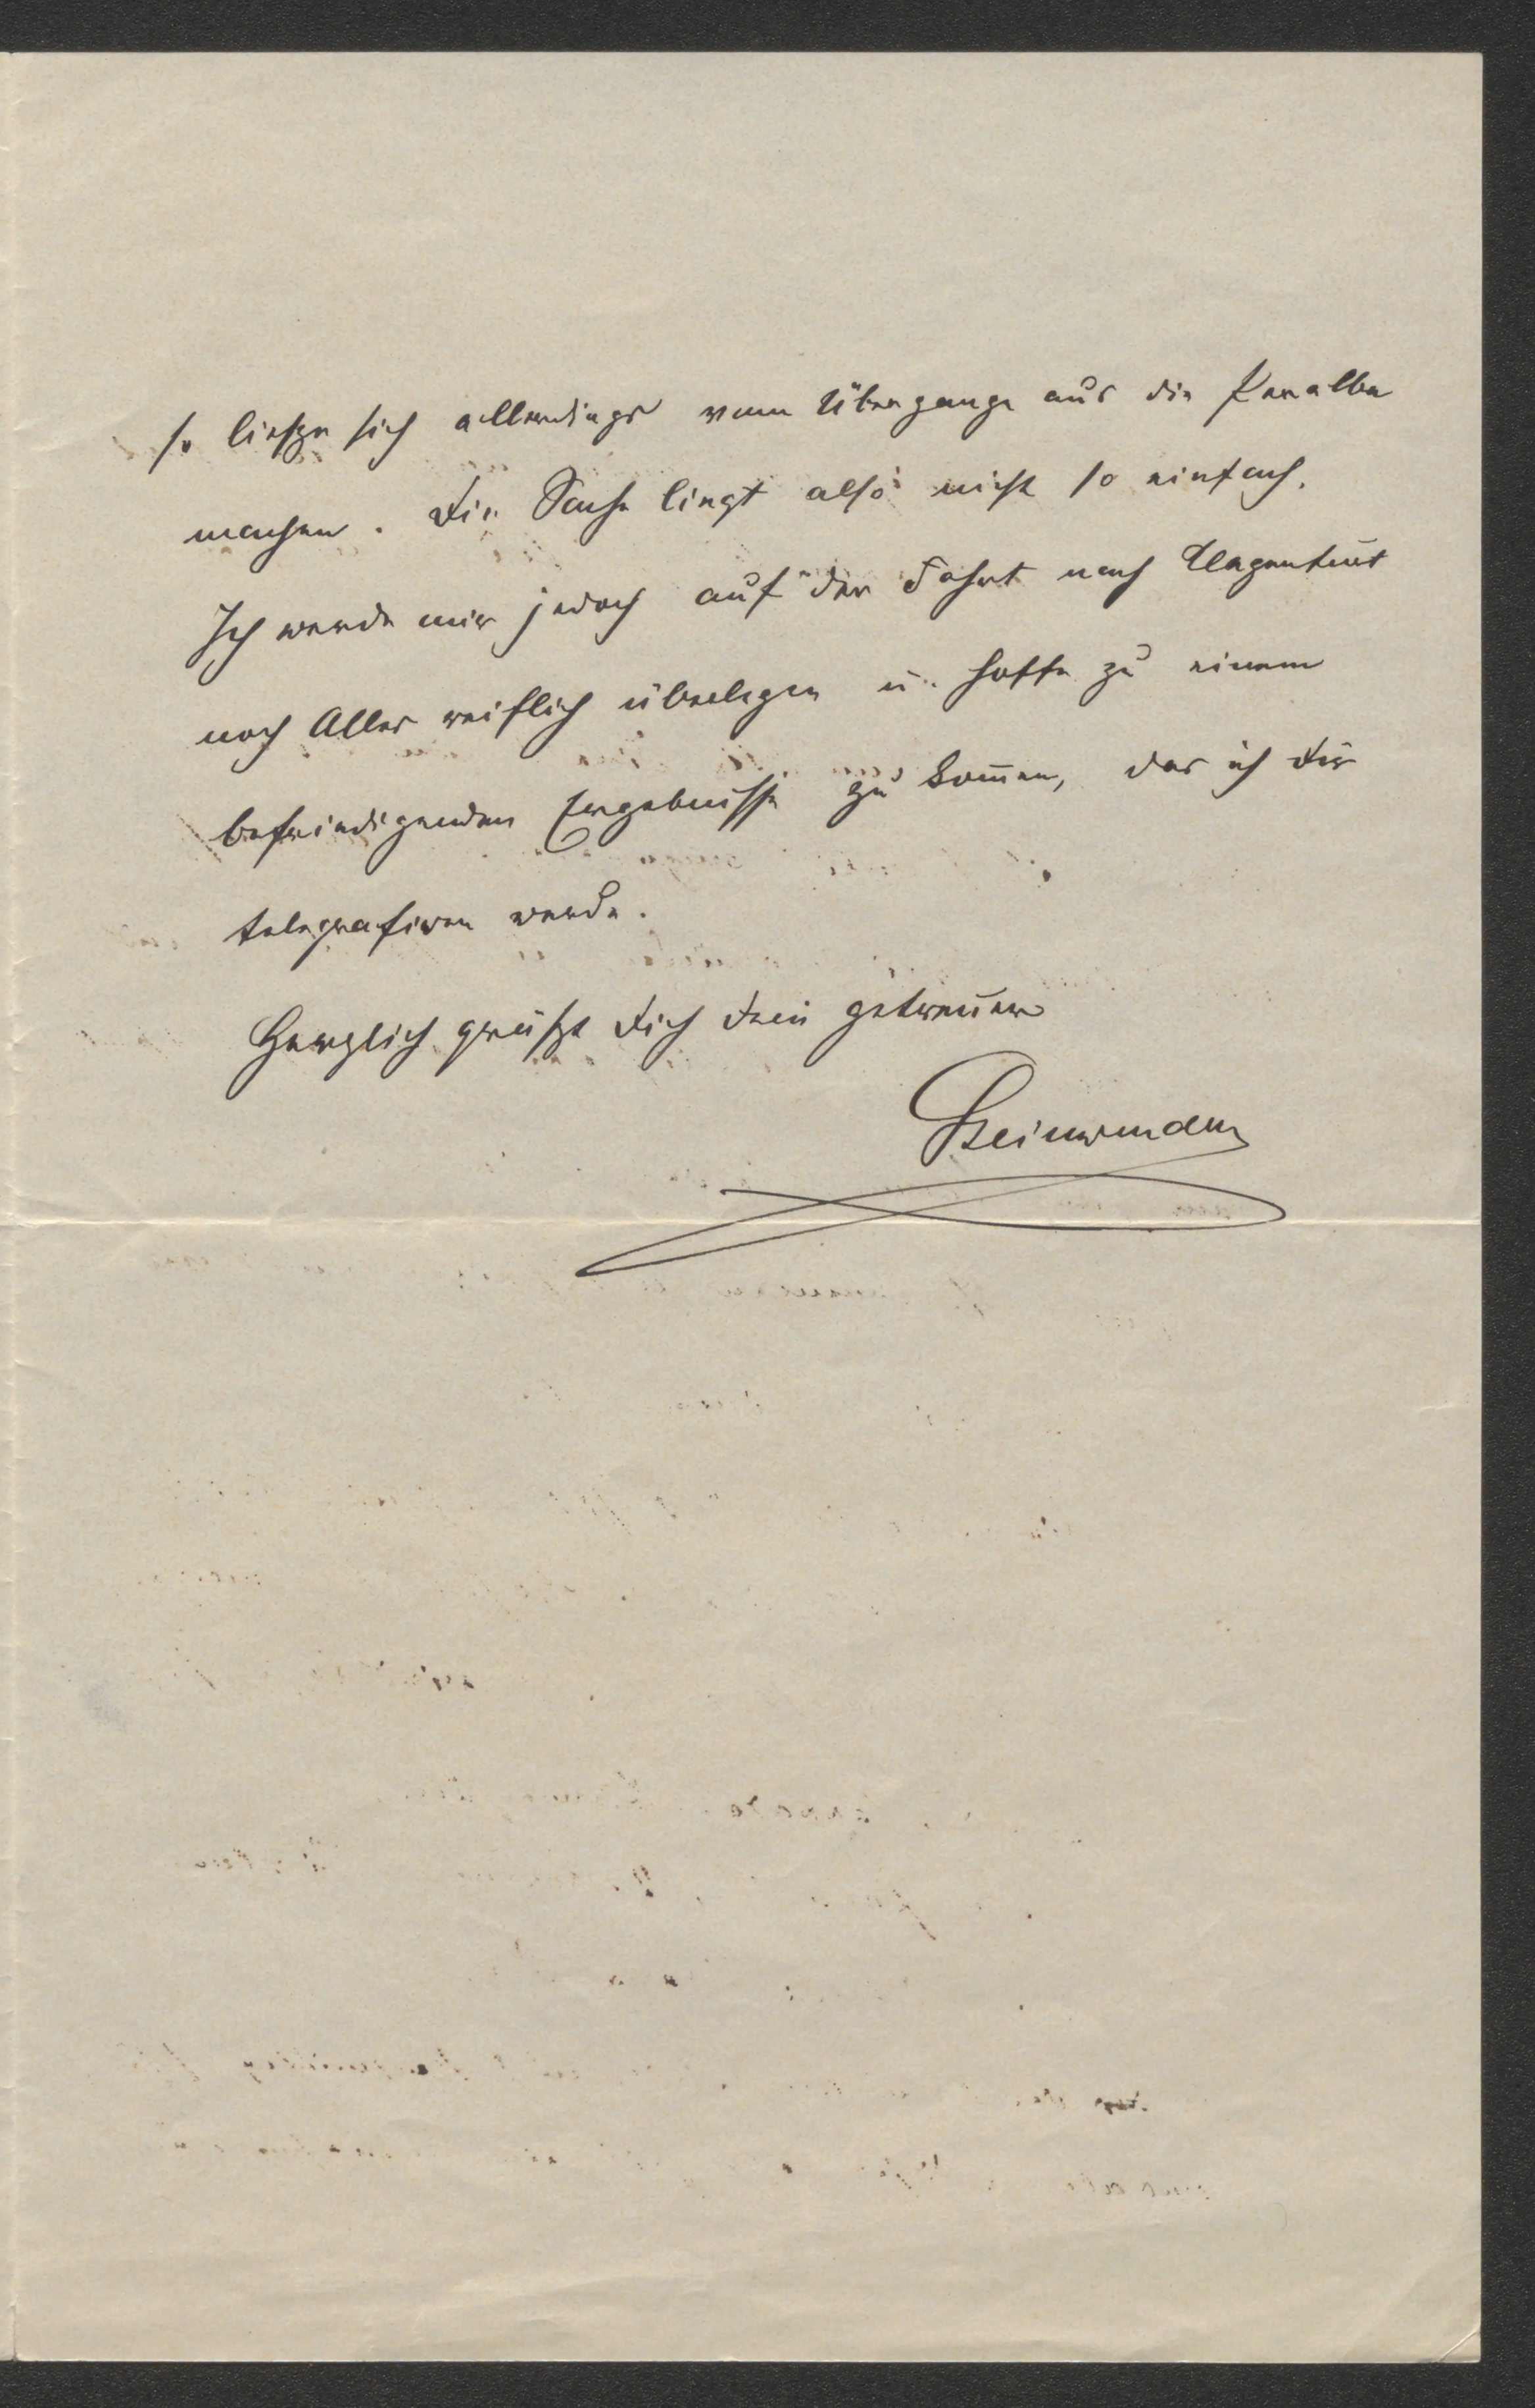 so ließe sich allerdings vom Übergange aus die Peralba
machen. Die Sache liegt also nicht so einfach.
Ich werde mir jedoch auf der Fahrt nach Klagenfurt
noch Alles reiflich überlegen u. hoffe zu einem
befriedigenden Ergebnisse zu kom̄en, das ich Dir
telegrafiren werde.
Herzlich grüßt Dich Dein getreuer